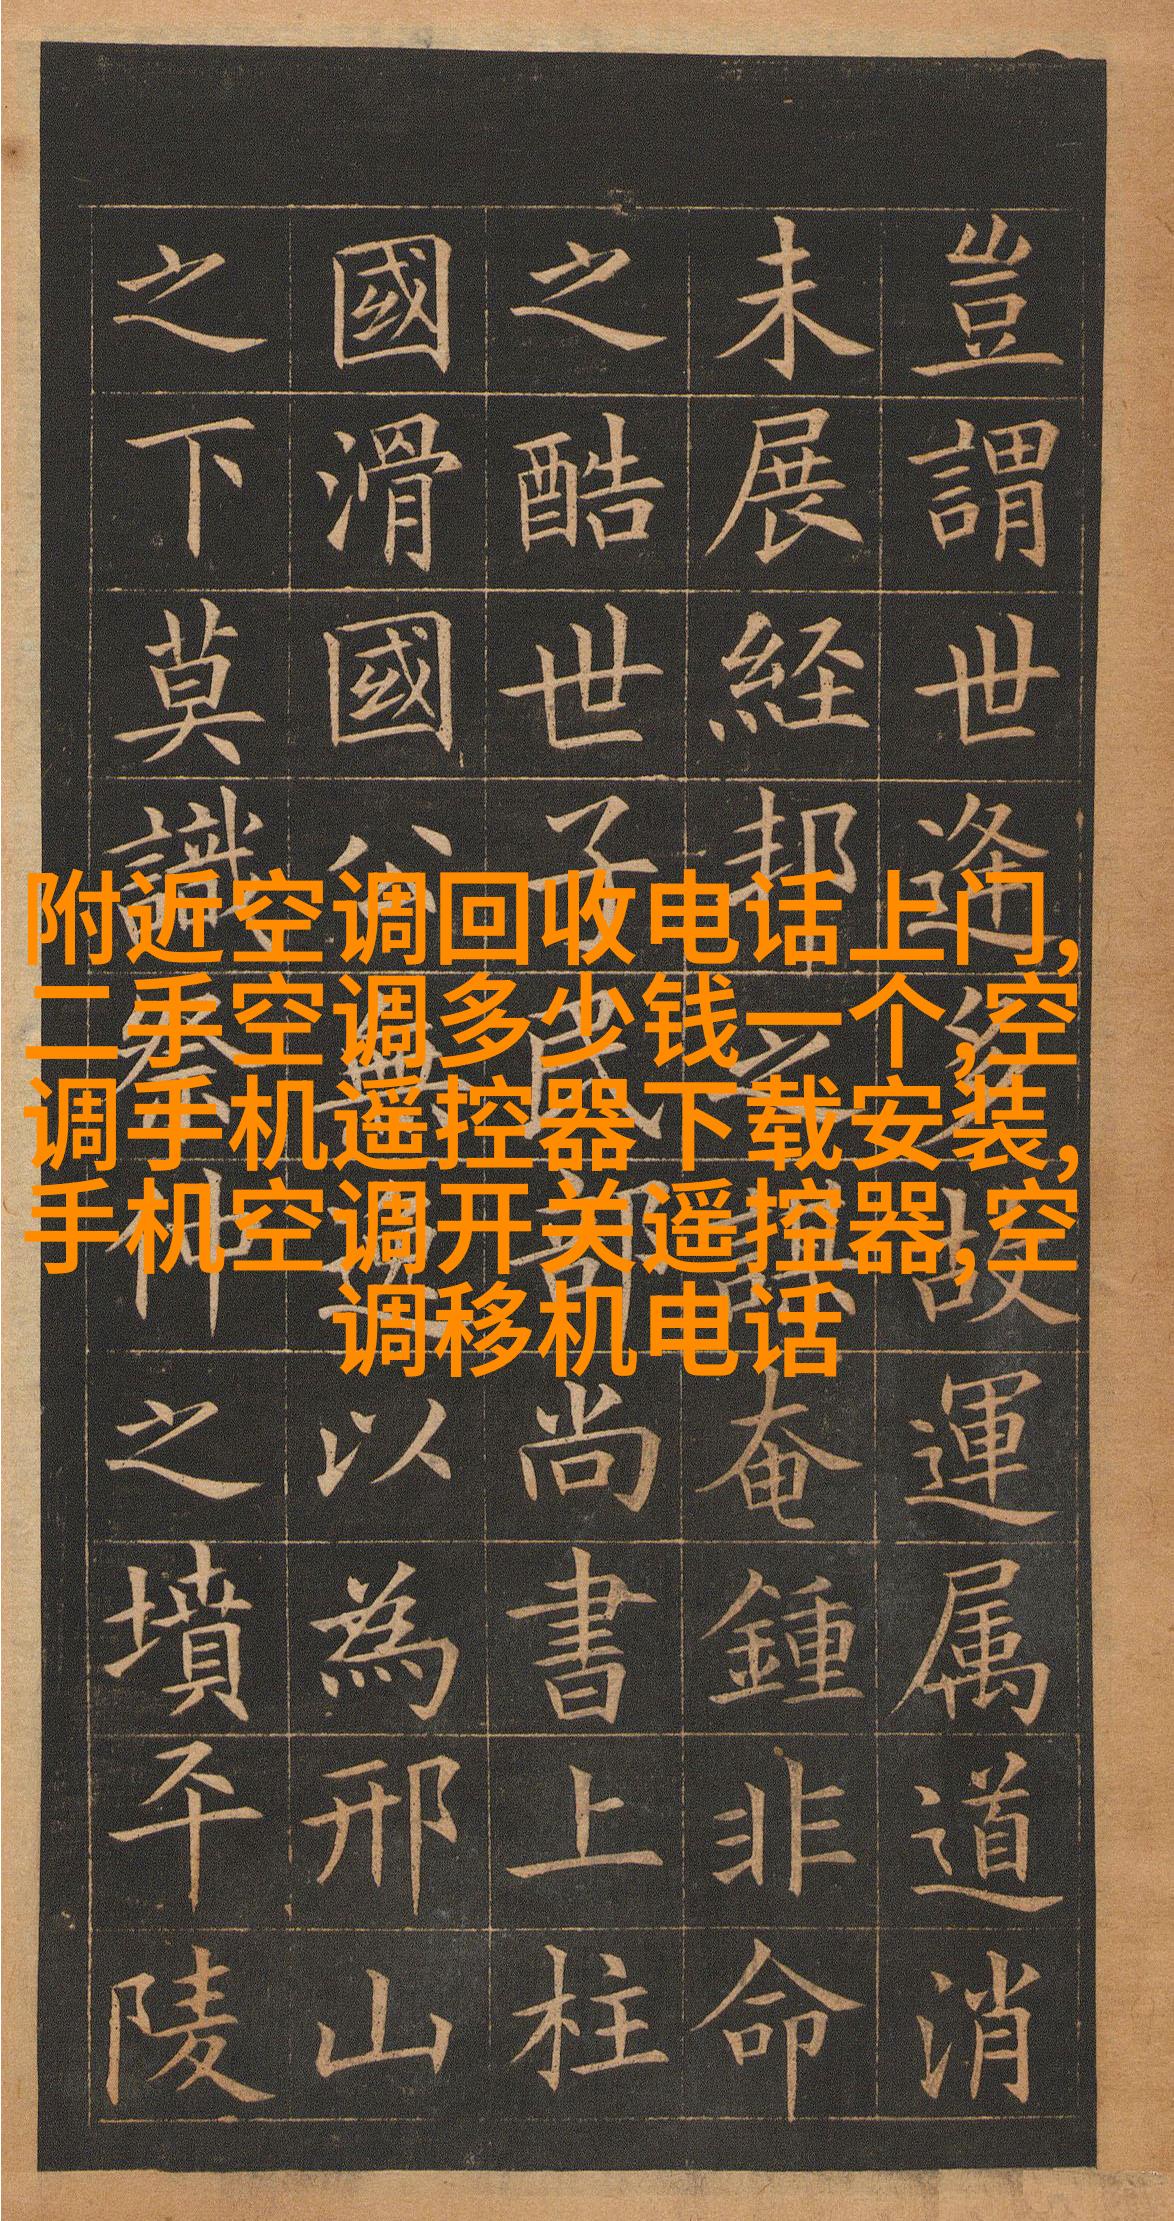 附近空调回收电话上门,
二手空调多少钱一个,空
调手机遥控器下载安装,
手机空调开关遥控器,空
调移机电话
豈謂世逢多故運属道消
未展経邦之謀奄鍾非命
之酷世子民部尚書上柱
國滑國公無逸以為邢山
之下莫識祭仲之墳平陵